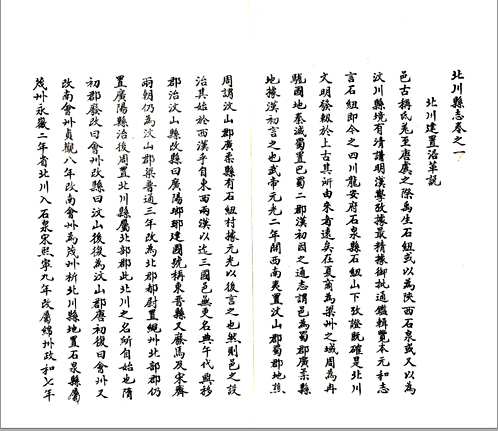 北川縣志卷之一
北川建置沿革説
邑古稱氐羌至唐虞之際為生石紐或以為陝西石泉或又以為
汶川縣境有清譜明漢學攷據最精據御批通鑑輯覽本元和志
言石紐即今之四川龍安府石泉縣石紐山下攷證既確是北川
文明發軔於上古其所由來者遠矣在夏商為梁州之域周為冉
駹國地秦滅蜀置巴蜀二郡漢初因之通志謂邑為蜀郡廣柔縣
地據漢初言之也武帝元光二年開西南夷置汶山郡蜀郡地
周謂汶山郡廣柔縣有石紐村據元光以後言之也然則邑之設
治其始於西漢乎自東西兩漢以迄三國邑無更名典午代興移
郡治汶山縣改縣曰廣陽瑯琊建國號稱東晉縣又廢焉及宋齊
兩朝仍為汶山郡梁普通三年改為北郡都尉置繩州北部郡仍
置廣陽縣治後周置北川縣屬北部郡此北川之名所自始也隋
初郡廢改曰會州改縣曰汶山後復為汶山郡唐初復曰會州又
改南會州貞觀八年改南會州為茂州析北川縣地置石泉縣屬
茂州永徽二年省北川入石泉宋熙寧九年改屬綿州政和七年